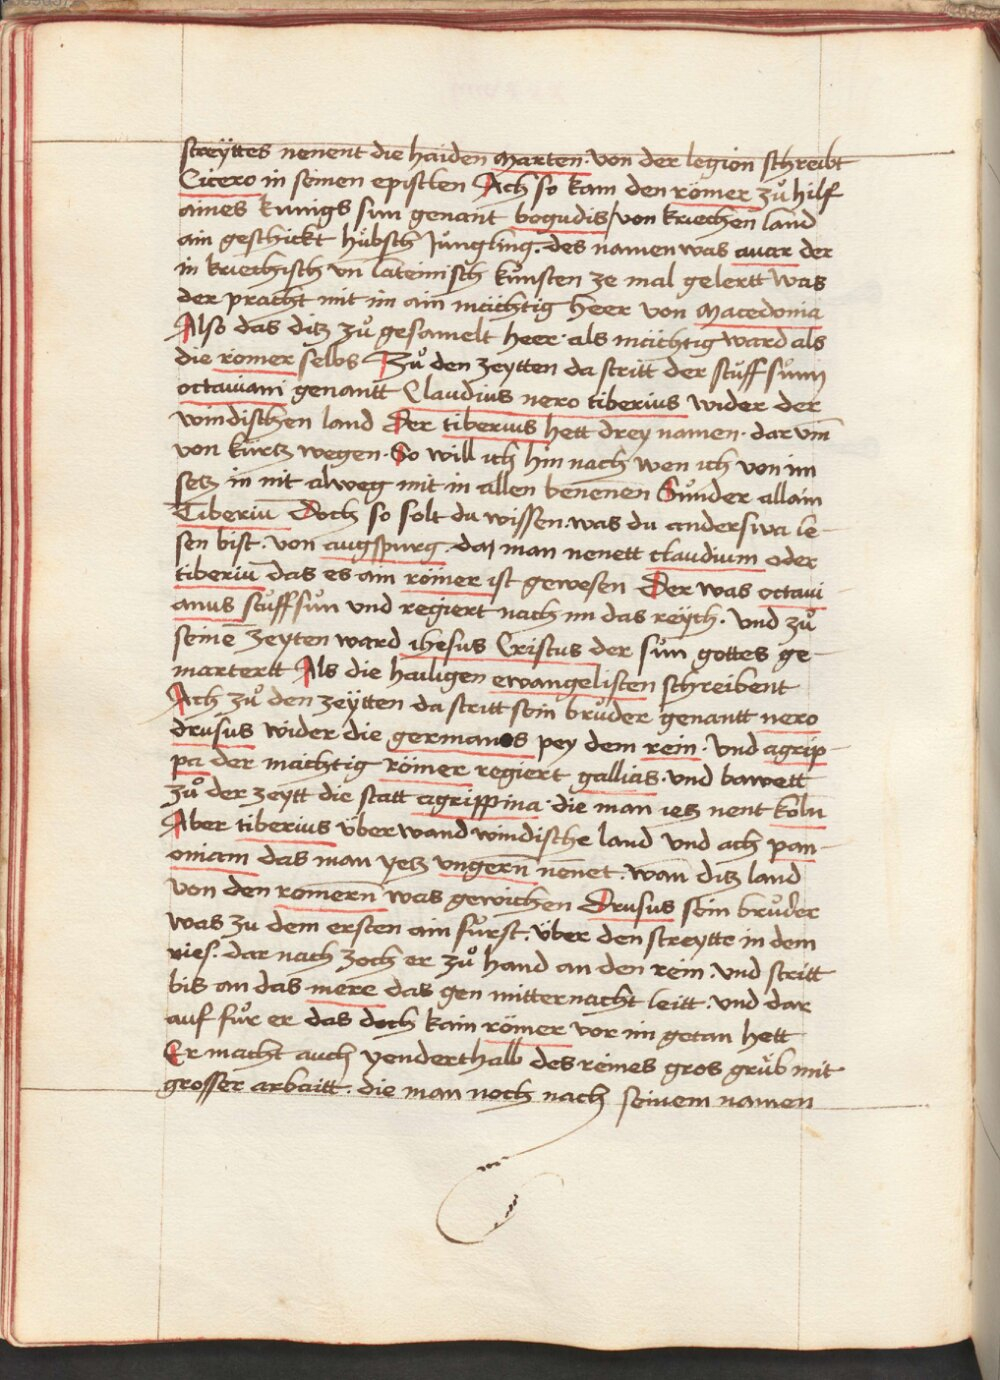 streÿttes nenent die haiden Marten · von der legion schreibt
Cicero in seinen epistlen Ach so kam den römer zů hilf
aines kunigs sun genant bogudis / von kriechen land
ain geschickt hübsch Jüngling · des namen was auar der
in kriechisch vn̄ lateinisch künsten ze mal gelertt was
der pracht mit im ain mächtig heer von Macedonia
Also das ditz zů gesamelt heer · als mächtig ward als
die römer selbs Zů den zeytten da stritt der stüff sün
octauiani genantt Claudius nero tiberius wider der
windischen land Der tiberius hett drey namen · dar vm̄
von kürtz wegen · So will ich hin nach wen ich von im
setz in nit alweg mit in allen benenen Sunder allain
Tiberiū Doch so solt du wissen was du anderswa le-
sen bist · von augspurg · daz man nenett claudium oder
tiberiū das es ain römer ist gewesen Der was octaui
anus stüff sün und regiert nach im das reÿch · Und zů
seinē zeyten ward ihesus Cristus der sün gottes ge-
martertt Als die hailigen ewangelisten schreibent
Ach zů den zeÿtten da stritt sein brůder genantt nero
drusus wider die germanos pey dem rein · Und agrip-
pa der mächtig römer regiert gallias · und bawett
zů der zeytt die statt agrippina · die man ietz nent köln
Aber tiberius überwand windische land und ach pan-
oniam das man yetz vngern̄ nēnet · wan̄ ditz land
von den römern̄ was gewichen Drusus sein brůder
was zu dem ersten ain fürst · über den streytte in dem
ries · dar nach zoch er zů hand an den rein · und stritt
bis an das mere das gen mitternacht leitt · und dar
auf fůr er das doch kain römer vor im getan hett
Er macht auch yenderthalb des reines gros grüb mit
grosser arbaitt · die man noch nach seinem namen